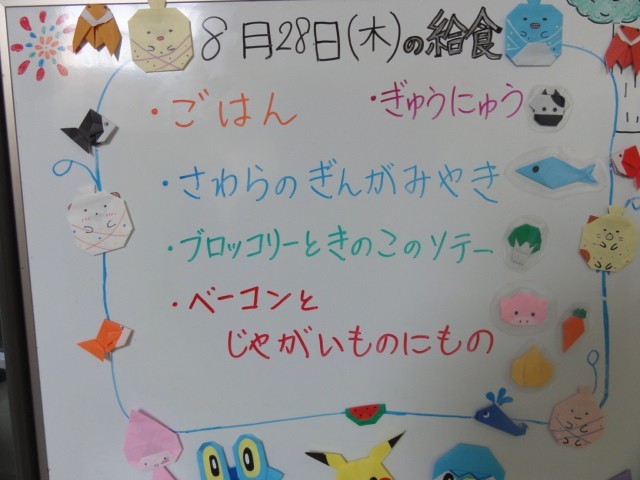 8月28日(木)の給食
・ごはん ・ぎゅうにゅう
・さわらのぎんがみやき
・ブロッコリーときのこのソテー
・ベーコンと
じゃがいものにもの